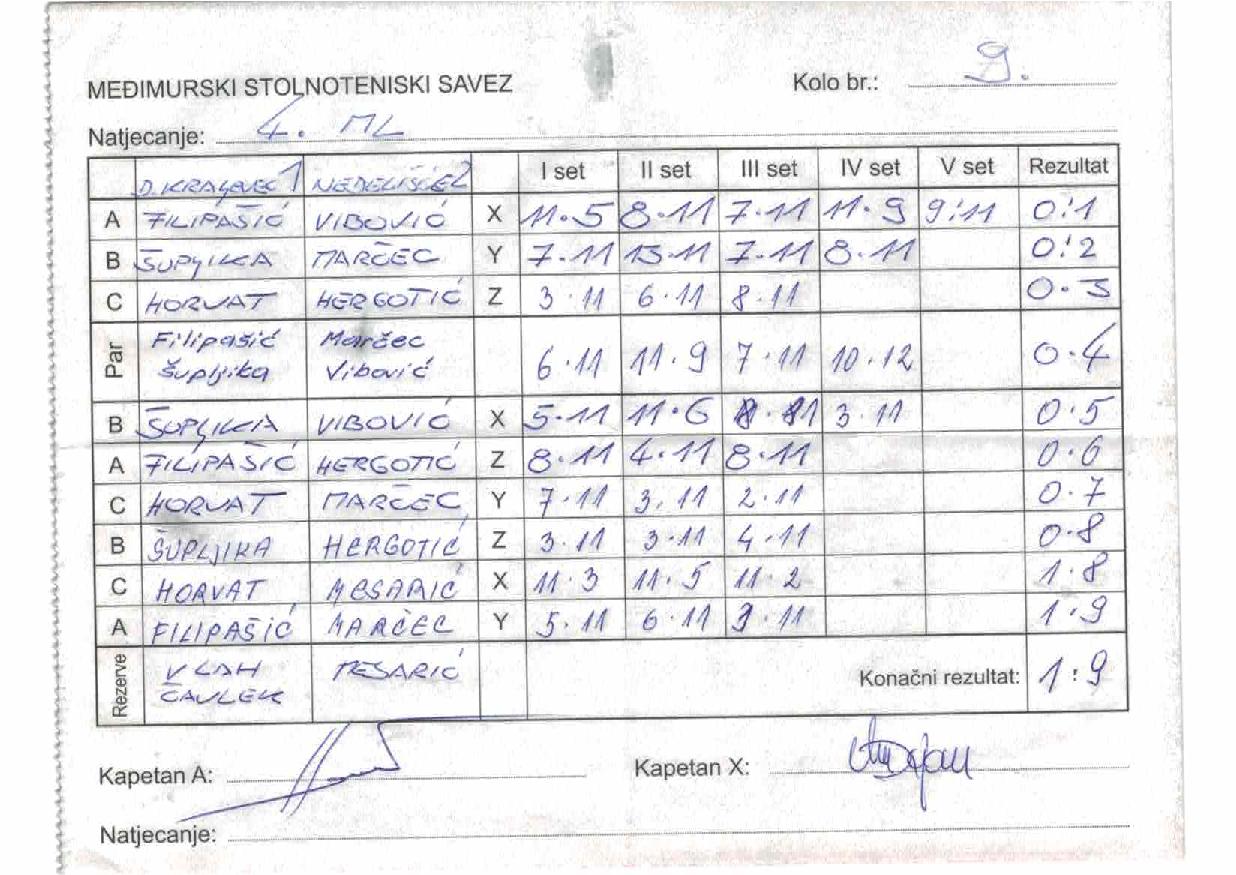 MEĐIMURSKI STOLNOTENISKI SAVEZ Kolo br.: 9.
Natjecanje: 4. ML
D. KRALJEVEC 1 NEDELIŠĆE 2 I set II set III set IV set V set Rezultat
A FILIPAŠIĆ VIBOVIĆ X 11·5 8·11 7·11 11·9 9:11 0:1
B ŠUPLJIKA MARČEC Y 7·11 13·11 7·11 8·11 0:2
C HORVAT HERGOTIĆ Z 3·11 6·11 8·11 0·3
Par Filipašić Marčec
Šupljika Vibović 6·11 11·9 7·11 10·12 0·4
B ŠUPLJIKA VIBOVIĆ X 5·11 11·6 8·11 3·11 0·5
A FILIPAŠIĆ HERGOTIĆ Z 8·11 4·11 8·11 0·6
C HORVAT MARČEC Y 7·11 3·11 2·11 0·7
B ŠUPLJIKA HERGOTIĆ Z 3·11 3·11 4·11 0·8
C HORVAT MESARIĆ X 11·3 11·5 11·2 1·8
A FILIPAŠIĆ MARČEC Y 5·11 6·11 3·11 1·9
Rezerve VLAH MESARIĆ
ČAVLEK Konačni rezultat: 1:9
Kapetan A: Kapetan X:
Natjecanje: